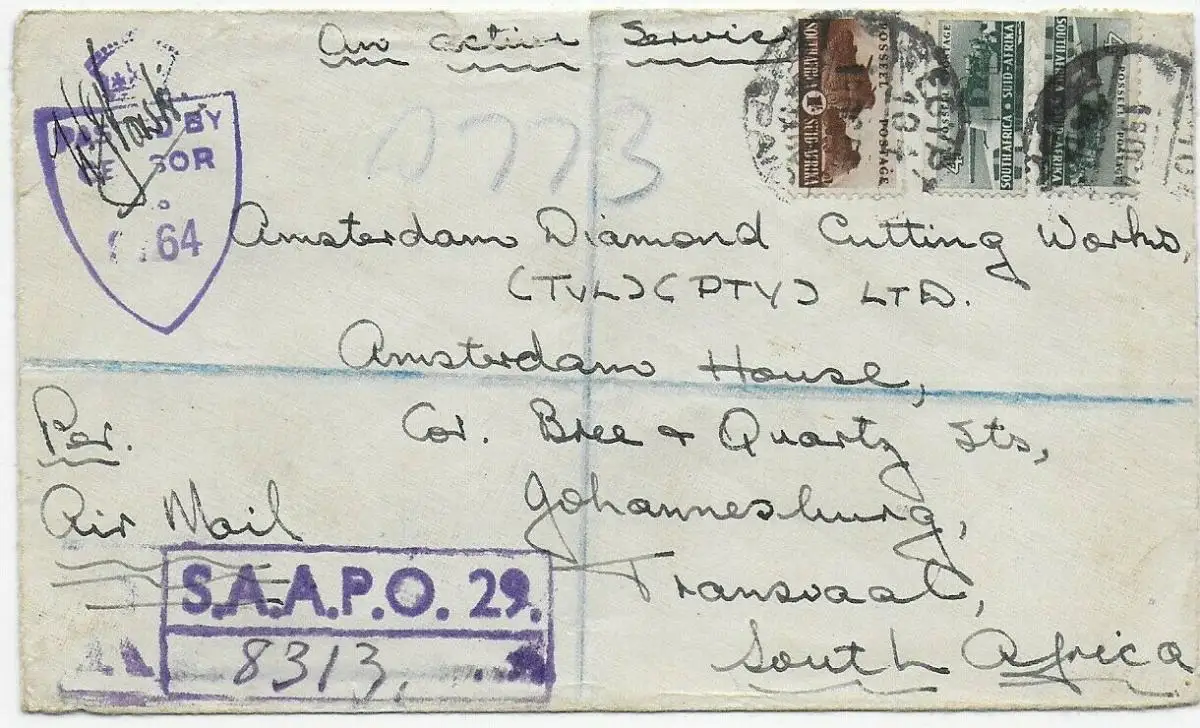 On active Service
PASSED BY
CENSOR
64
A773
Amsterdam Diamond Cutting Works,
(TVL) (PTY) LTD.
Amsterdam House,
Cor. Bree & Quartz Sts,
Johannesburg,
Transvaal,
South Africa
Per.
Air Mail
S.A.A.P.O. 29.
8313.
POSSEËL POSTAGE
SOUTH AFRICA 1/- SUID-AFRIKA
POSTAGE POSSEËL
SOUTH AFRICA SUID-AFRIKA
SOUTH AFRICA SUID-AFRIKA
POSSEËL POSTAGE
EGYPT